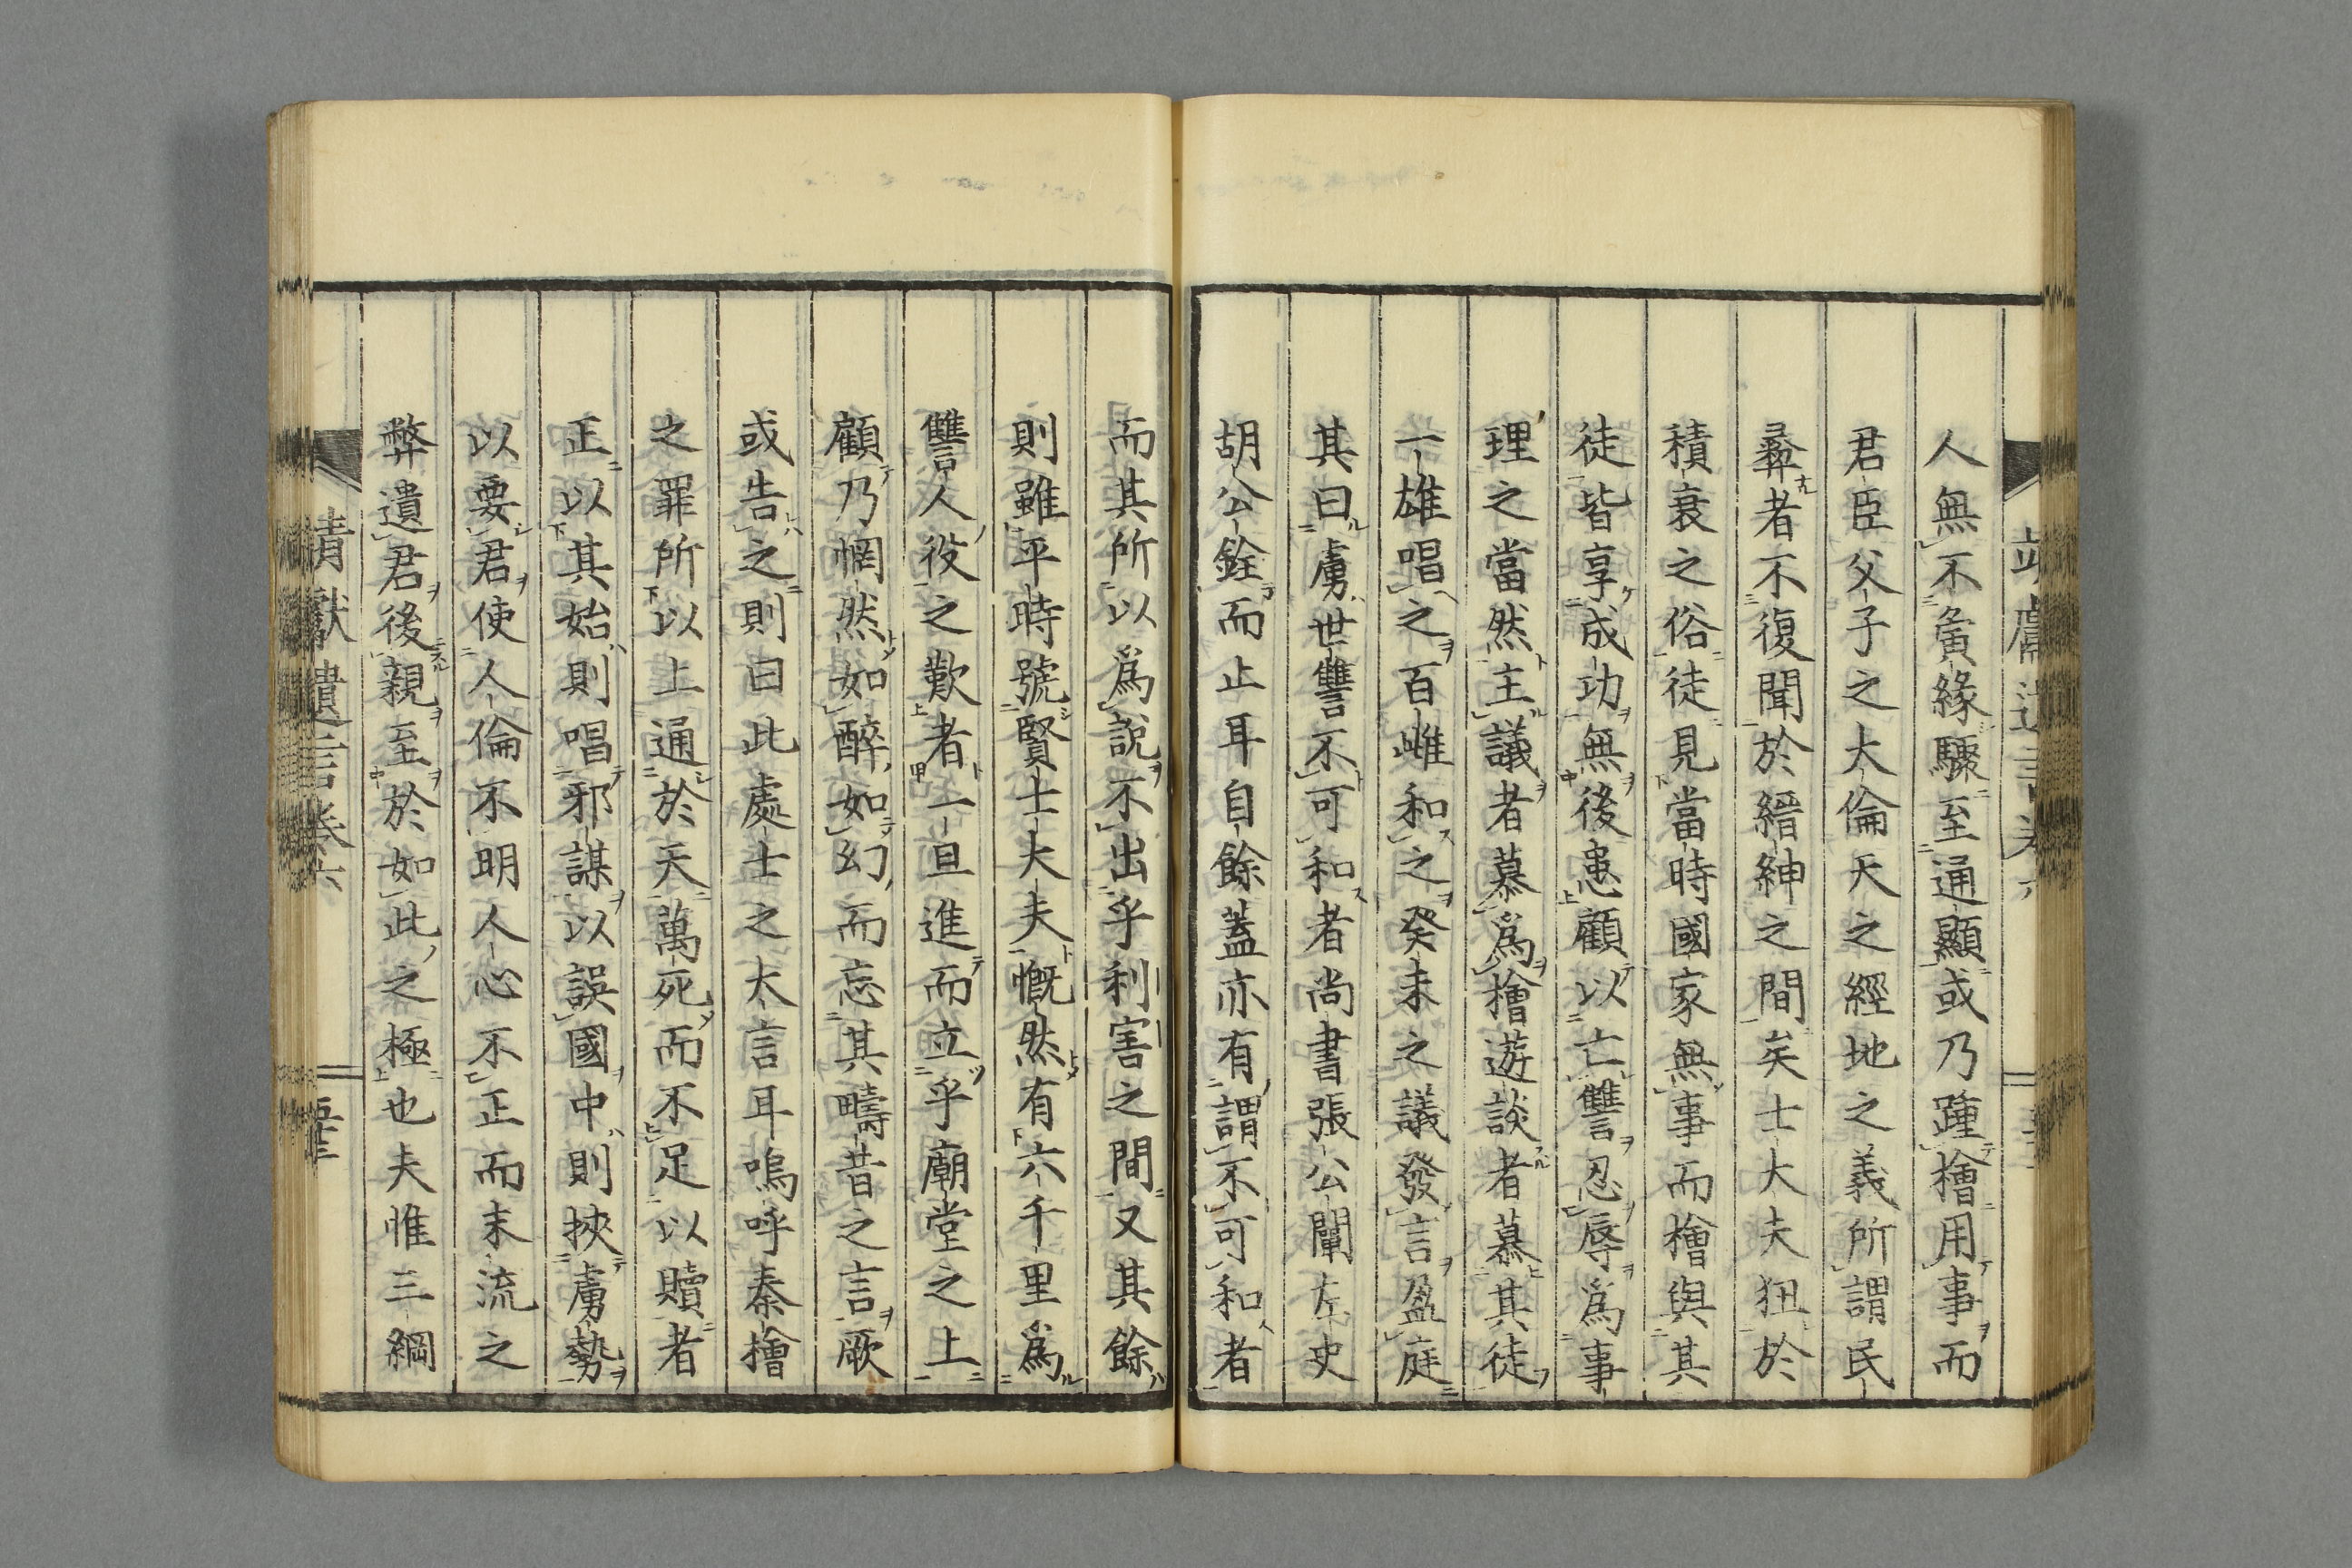 人無不夤緣驟至通顯或乃踵檜用事而
君臣父子之大倫天之經地之義所謂民
彝者不復聞於縉紳之間矣士大夫狃於
積衰之俗徒見當時國家無事而檜與其
徒皆享成功無後患顧以亡讐忍辱爲事
理之當然主議者慕爲檜遊談者慕其徒
一雄唱之百雌和之癸未之議發言盈庭
其曰虜世讐不可和者尚書張公闡左史
胡公銓而止耳自餘蓋亦有謂不可和者
而其所以爲說不出乎利害之間又其餘
則雖平時號賢士大夫慨然有六千里爲
讐人役之歎者一旦進而立乎廟堂之上
顧乃惘然如醉如幻而忘其疇昔之言厥
或告之則曰此處士之大言耳嗚呼秦檜
之罪所以上通於天萬死而不足以贖者
正以其始則唱邪謀以誤國中則挾虜勢
以要君使人倫不明人心不正而末流之
弊遺君後親至於如此之極也夫惟三綱
靖獻遺言卷六